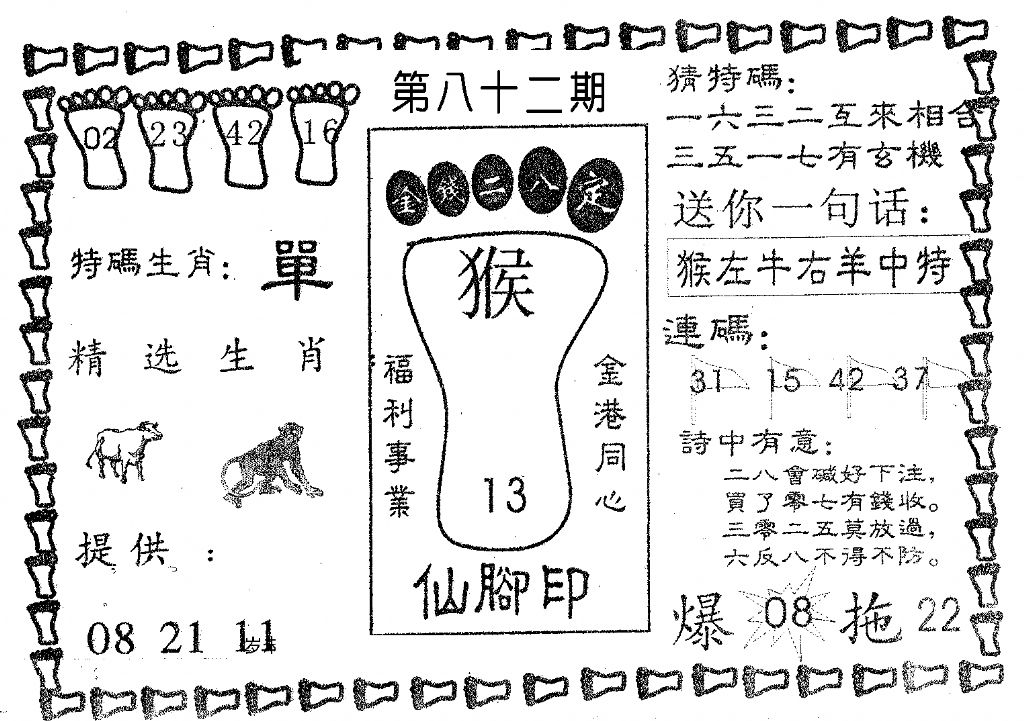 第八十二期
02 23 42 16
特碼生肖：單
精选生肖
提供：
08 21 11
金錢二八定
猴
福利事業
金港同心
13
仙腳印
猜特碼：
一六三二互來相合
三五一七有玄機
送你一句话：
猴左牛右羊中特
連碼：
31 15 42 37
詩中有意：
二八會碱好下注，
買了零七有錢收。
三零二五莫放過，
六反八不得不防。
爆 08 拖 22